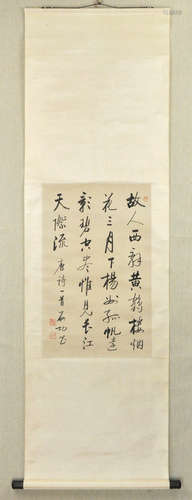 故人西辭黄鶴樓烟
花三月下楊州孤帆遠
影碧空尽惟見长江
天際流 唐詩一首